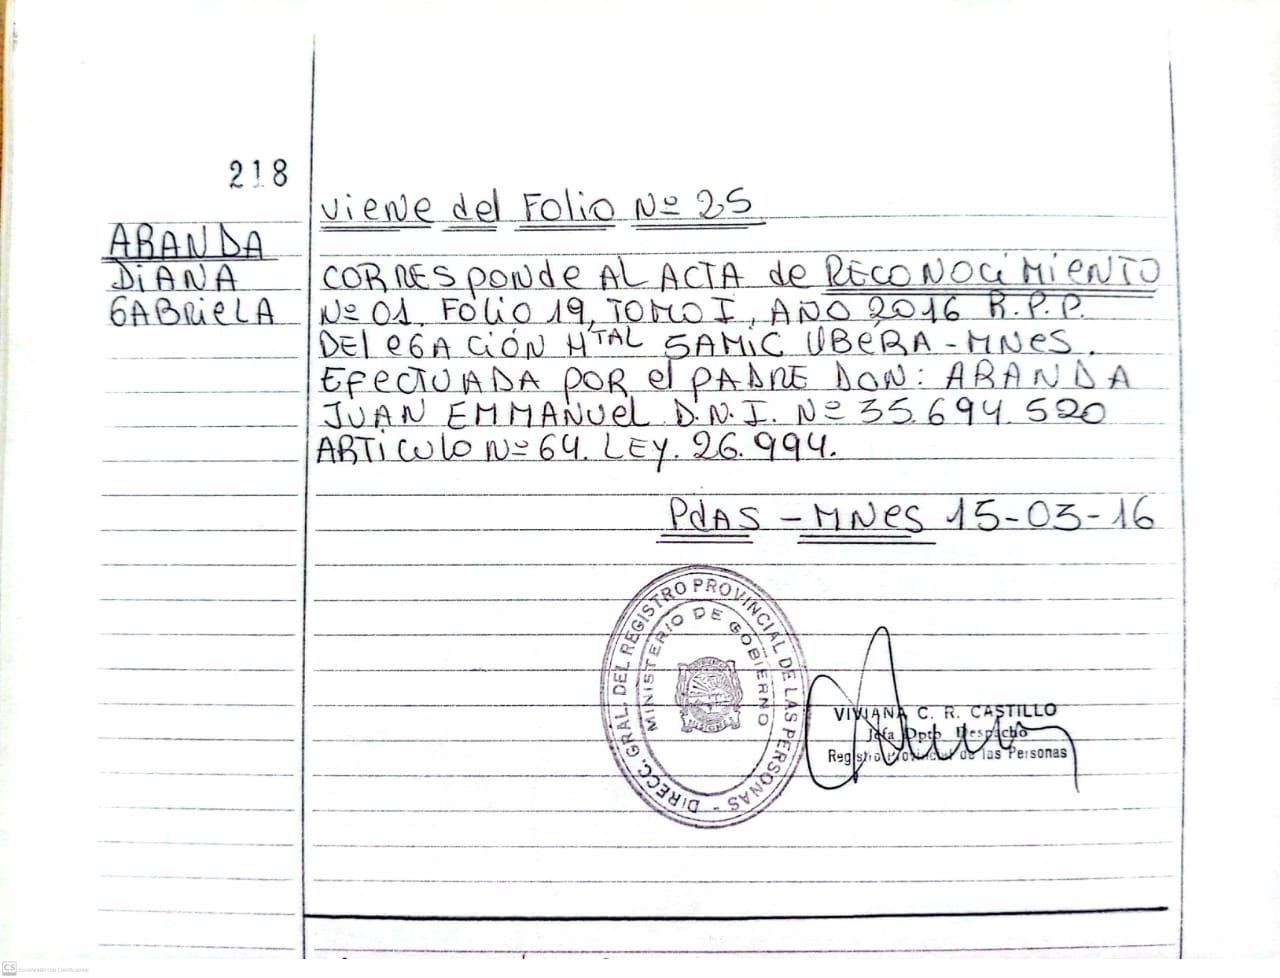 218
viene del Folio Nº 25
ARANDA
DiANA
GABRieLA
CORResponde AL ACTA de RECONOCiMieNTO
Nº 01. Folio 19, TOMO I, AÑO 2016 R.P.P.
DElEGACiÓN HTAL SAMiC OBERA-MNES.
EfECTUADA POR el PADRE DON: ARANDA
JUAN EMMANuel D.N.I. Nº 35.694.520
ARTiCulo Nº 64. LEY. 26.994.
PdAS - MNES 15-03-16
DIRECC. GRAL. DEL REGISTRO PROVINCIAL DE LAS PERSONAS -
MINISTERIO DE GOBIERNO
VIVIANA C. R. CASTILLO
Jefa Dpto Despacho
Registro Provincial de las Personas
CS Escaneado con CamScanner